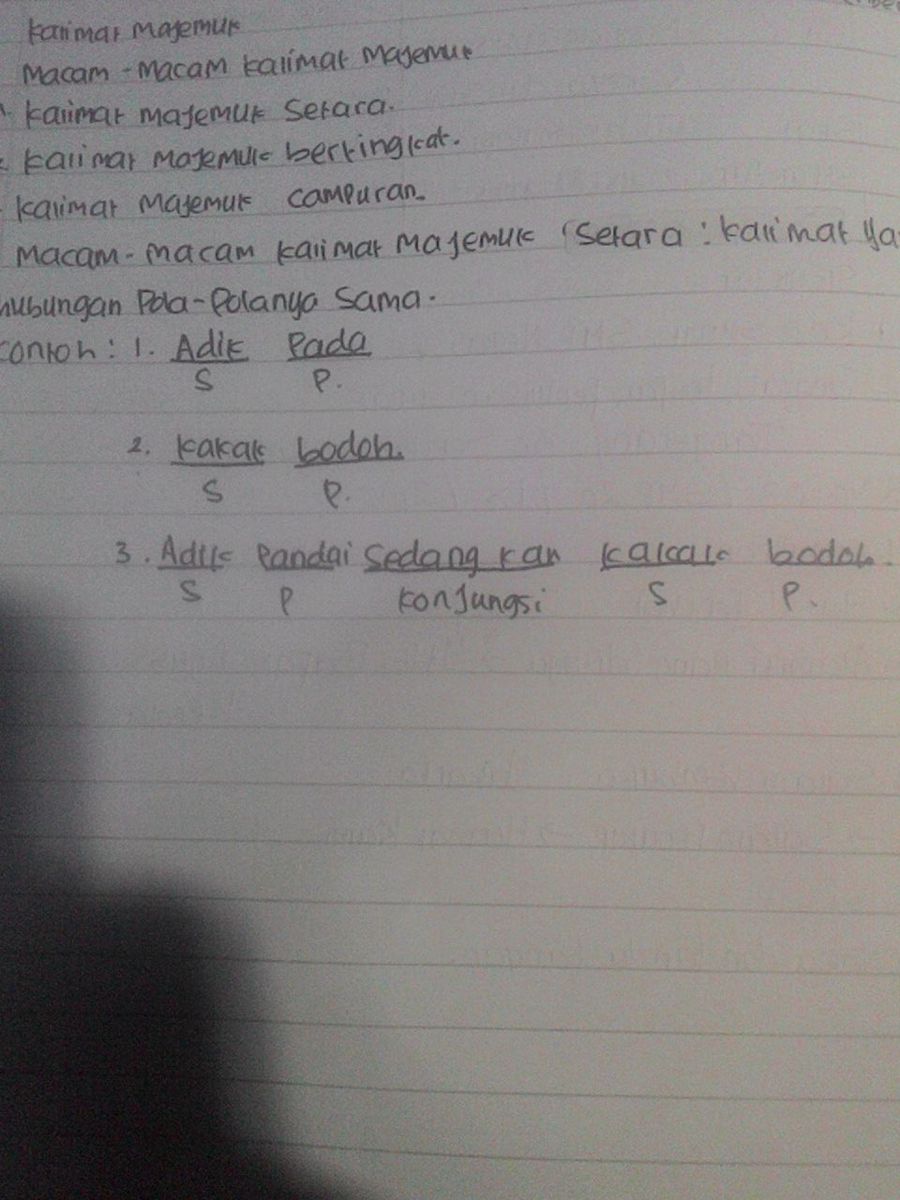 Kalimat Majemuk
Macam - Macam Kalimat Majemuk
1. Kalimat Majemuk Setara.
Kalimat Majemuk bertingkat.
Kalimat Majemuk Campuran.
Macam - macam Kalimat Majemuk (Setara : Kalimat ya
hubungan Pola-Polanya Sama.
Contoh : 1. Adik Pada
S P.
2. Kakak bodoh.
S P.
3. Adik Pandai Sedang kan Kakak bodoh.
S P Konjungsi S P.